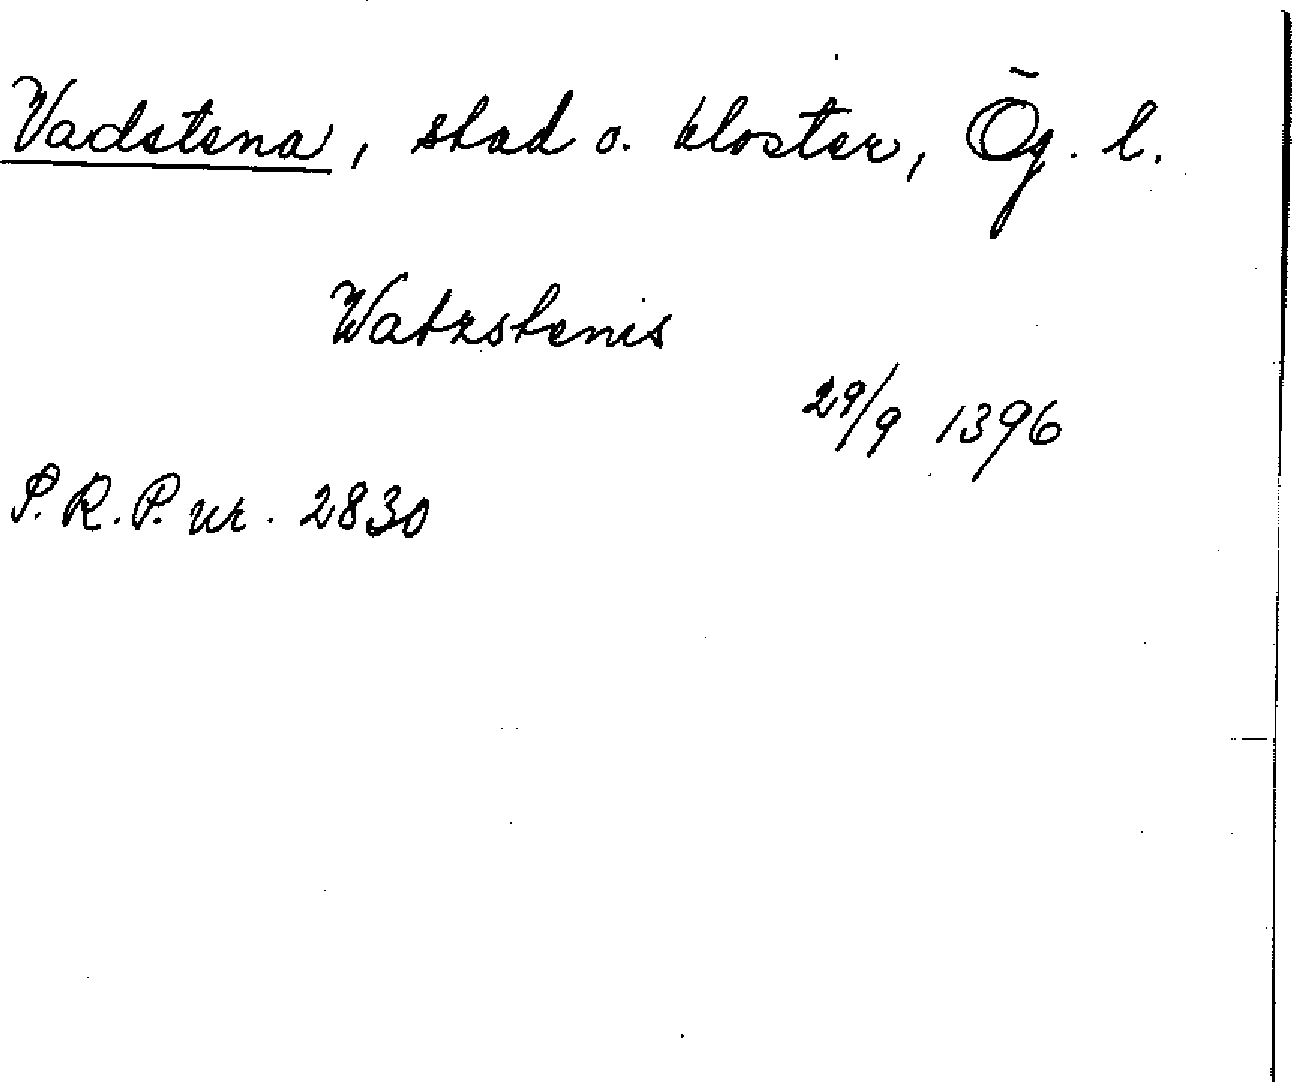 Vadstena, stad o. kloster, Ög. l.
Watzstenis
29/9 1396
S.R.P. nr. 2830